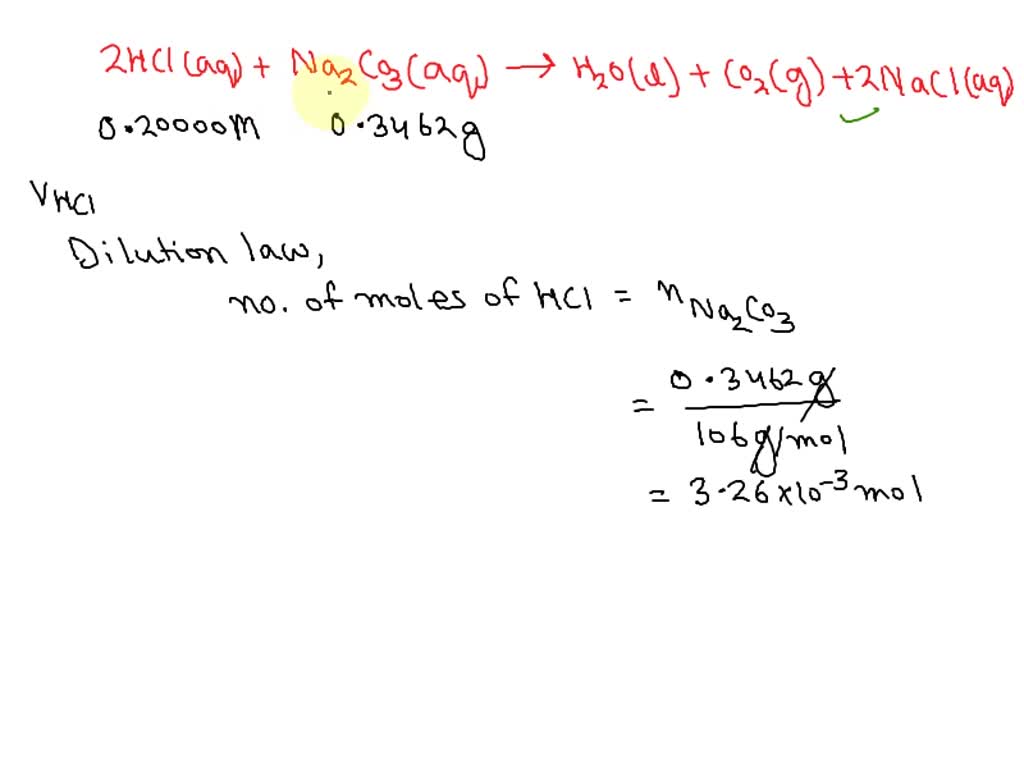 2HCl(aq) + Na₂CO₃(aq) → H₂O(l) + CO₂(g) + 2NaCl(aq)
0.20000M 0.3462g
VHCl
Dilution law,
no. of moles of HCl = nNa₂CO₃
= 0.3462g / 106g/mol
= 3.26×10⁻³ mol